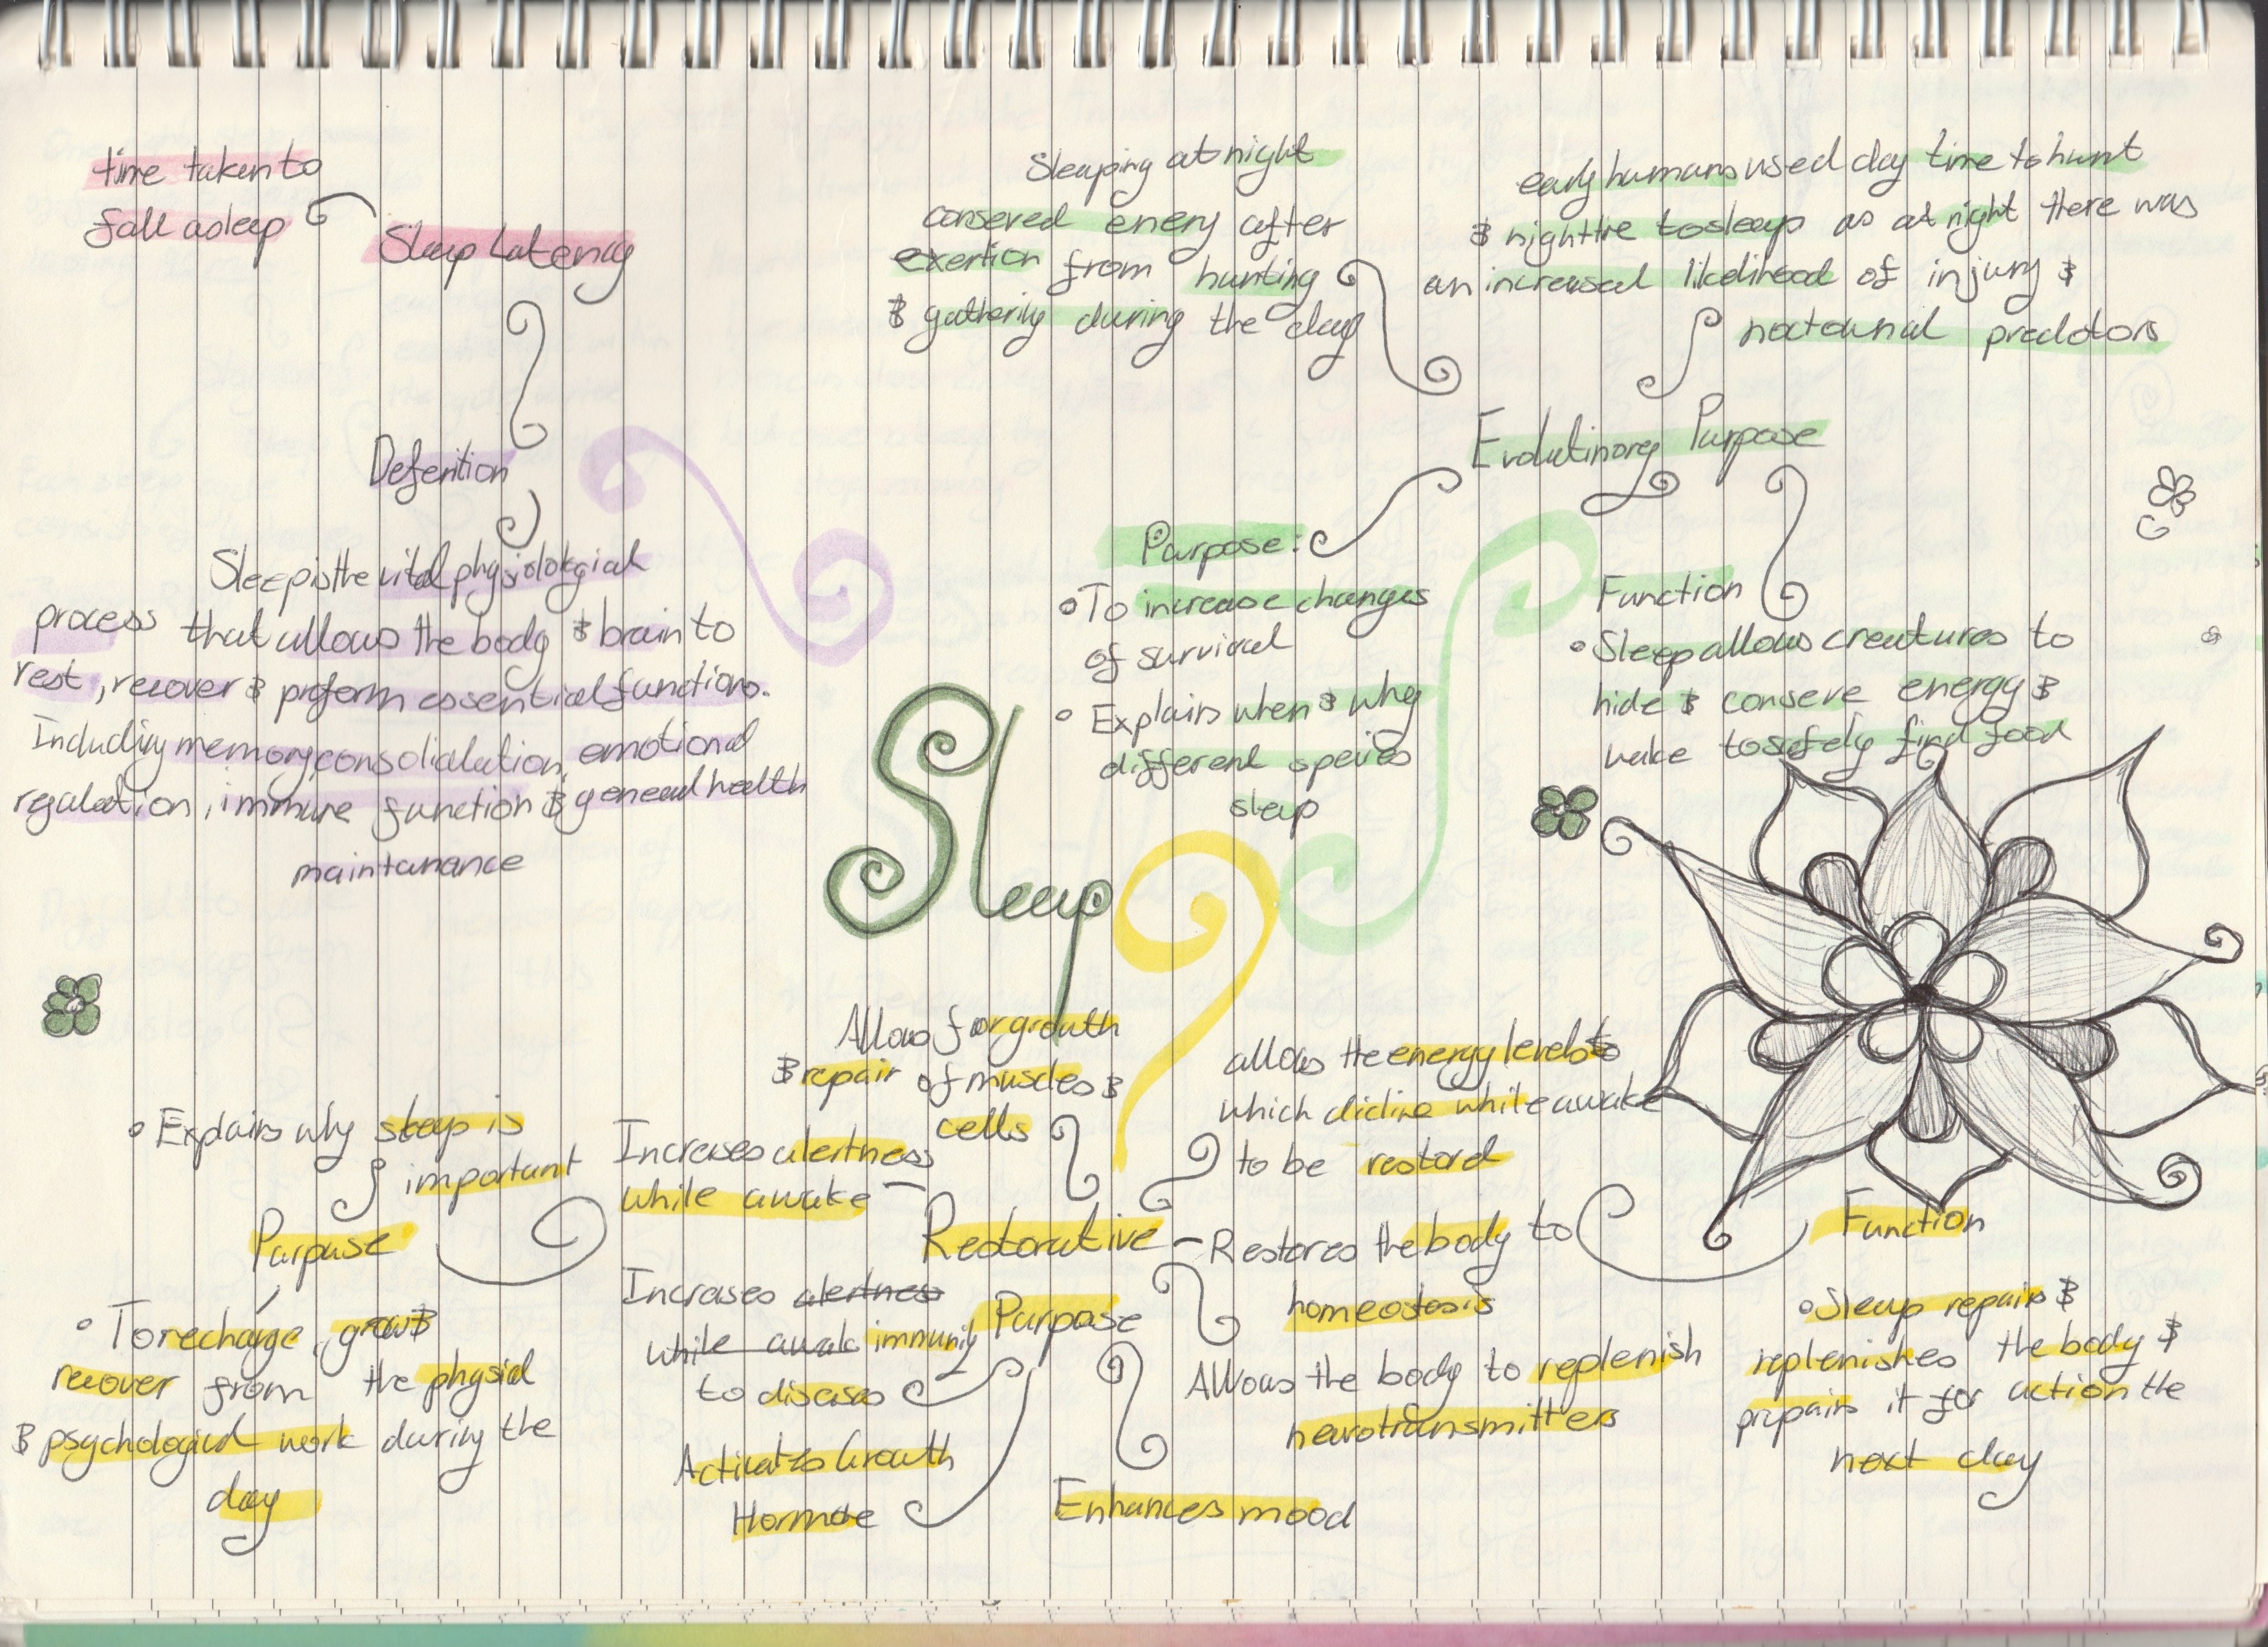 time taken to
fall asleep
Sleep Latency
Defenition
Sleep is the vital physiological
process that allows the body & brain to
rest, recover & preform essential functions.
Including memory consolidation, emotional
regulation, immune function & general health
maintanance
Sleeping at night
conseved enery after
exertion from hunting
& gathering during the day
early humans used day time to hunt
& nighttie to sleep as at night there was
an increased likelihood of injury &
noctournal predators
Evolutinory Purpose
Purpose:
To increase changes
of survival
Explains when & why
different species
sleep
Function
Sleep allows creatures to
hide & conseve energy &
wake to safely find food
Sleep
Allows for growth
& repair of muscles &
cells
allows the energy levels to
which dicline while awake
to be restord
Explains why sleep is
important
Purpose
To recharge, grow &
recover from the physial
& psychological work during the
day
Increases alertness
while awake
Restorative
Purpose
Increases alertness
while awake immunity
to diseases
Activates Growth
Hormone
Restores the body to
homeostosis
Allows the body to replenish
neurotransmitters
Enhances mood
Function
Sleep repairs &
replenishes the body &
prepairs it for action the
next day